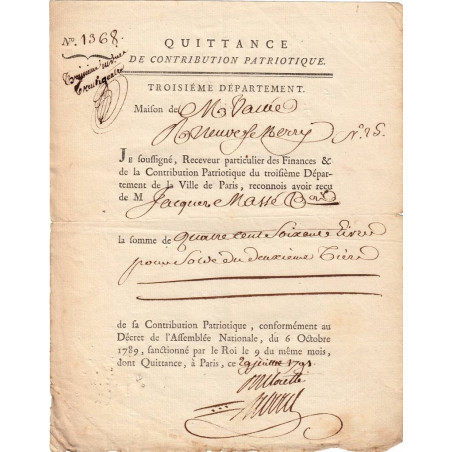 No. 1368.
QUITTANCE
DE CONTRIBUTION PATRIOTIQUE.
TROISIÈME DÉPARTEMENT.
Maison de M
R Neuve St Merry No. 25.
JE soussigné, Receveur particulier des Finances &
de la Contribution Patriotique du troisième Dépar-
tement de la Ville de Paris, reconnois avoir reçu
de M Jacques Massé
la somme de quatre cent soixante Livres
pour Solde du deuxième Tiers
de sa Contribution Patriotique, conformément au
Décret de l'Assemblée Nationale, du 6 Octobre
1789, sanctionné par le Roi le 9 du même mois,
dont Quittance, à Paris, ce 29 juillet 1791